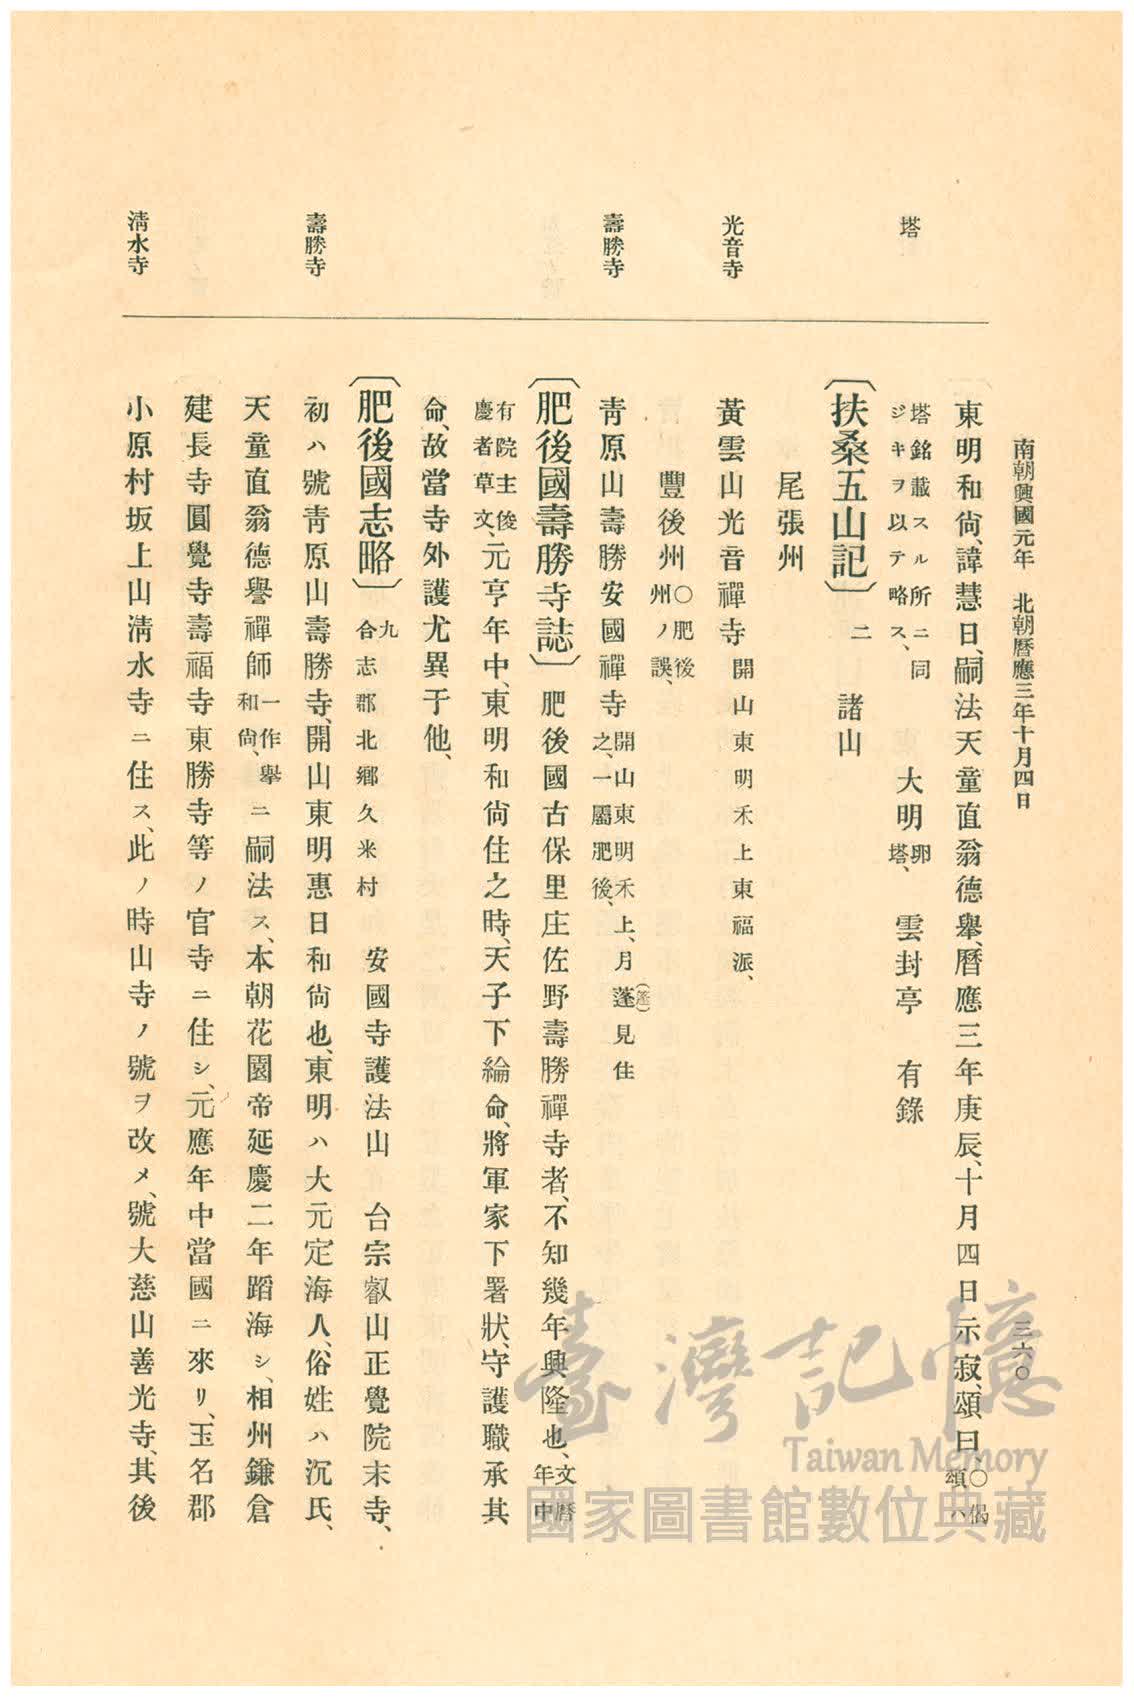 南朝興國元年 北朝曆應三年十月四日
三六〇
塔
光音寺
壽勝寺
壽勝寺
淸水寺
東明和尙、諱慧日、嗣法天童直翁德擧、曆應三年庚辰、十月四日示寂、頌曰、〇偈頌ハ
塔銘載スル所ニ同ジキヲ以テ略ス、 大明卵塔、 雲封亭 有錄
〔扶桑五山記〕二 諸山
尾張州
黃雲山光音禪寺 開山東明禾上東福派、
豐後州〇肥後州ノ誤、
靑原山壽勝安國禪寺 開山東明禾上、月蓬(篷)見住之、一屬肥後、
〔肥後國壽勝寺誌〕 肥後國古保里庄佐野壽勝禪寺者、不知幾年興隆也、文曆年中
有院主俊慶者草文、元亨年中、東明和尙住之時、天子下綸命、將軍家下署狀、守護職承其
命、故當寺外護尤異于他、
〔肥後國志略〕九 合志郡北鄕久米村 安國寺護法山 台宗叡山正覺院末寺、
初ハ號靑原山壽勝寺、開山東明惠日和尙也、東明ハ大元定海人、俗姓ハ沉氏、
天童直翁德譽禪師一作擧和尙、ニ嗣法ス、本朝花園帝延慶二年蹈海シ、相州鎌倉
建長寺圓覺寺壽福寺東勝寺等ノ官寺ニ住シ、元應年中當國ニ來リ、玉名郡
小原村坂上山淸水寺ニ住ス、此ノ時山寺ノ號ヲ改メ、號大慈山善光寺、其後
臺灣記憶
Taiwan Memory
國家圖書館數位典藏